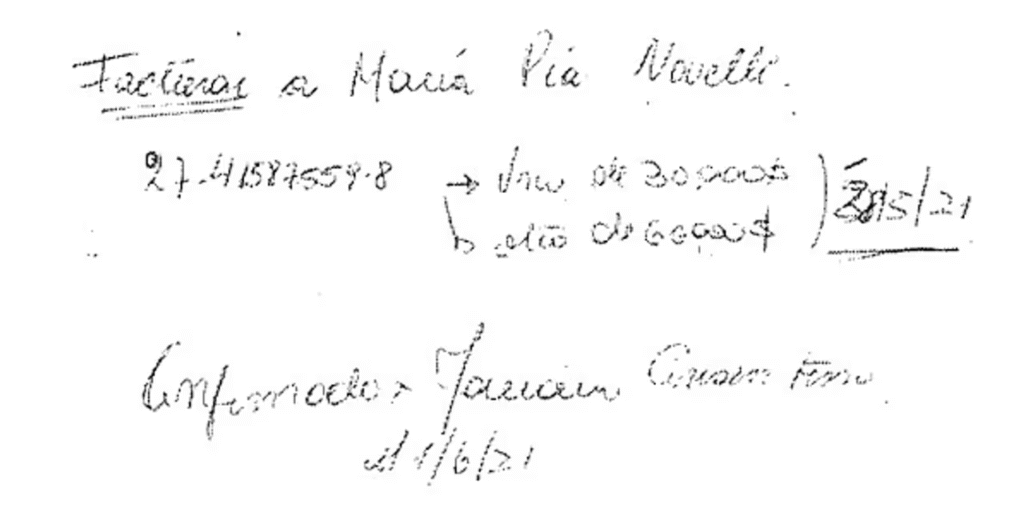 Facturas a María Pía Novelli.
27-41587559-8 → Uno de 30000$
otro de 60000$ /5/21
Confirmado x
el 1/6/21